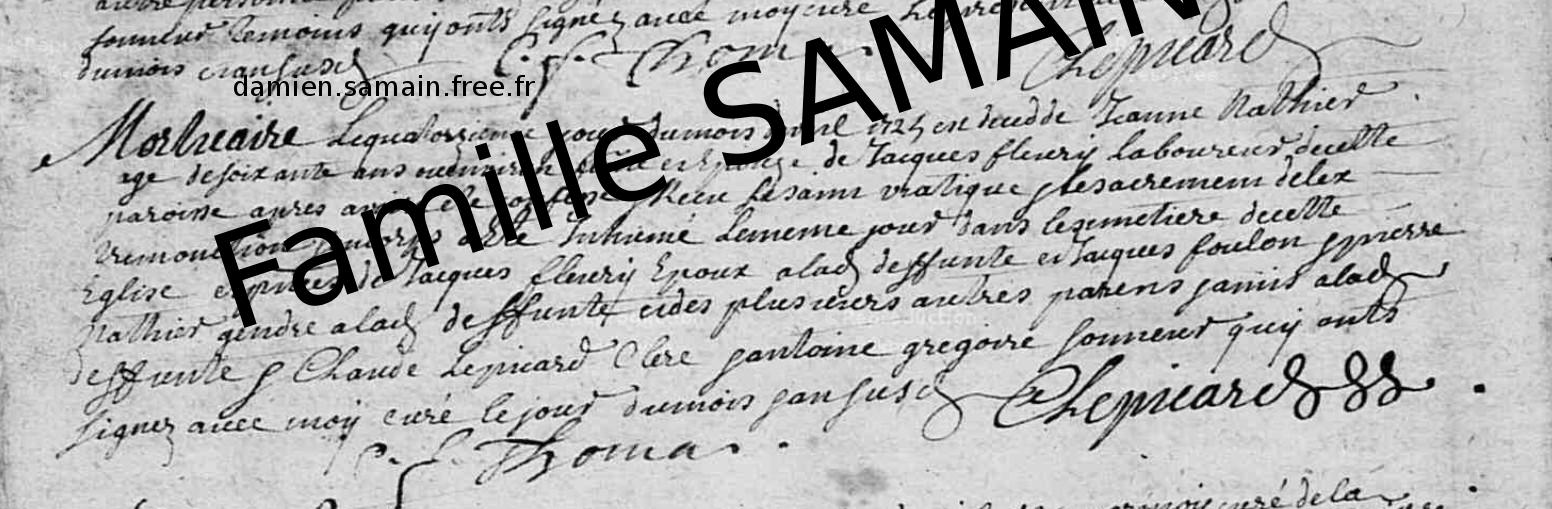 sonneur temoins quy onts signez avec moy curé
dumois et an susd
C. f. Thoma
CLepicard
damien.samain.free.fr
Famille SAMAIN
Mortuaire Le quatorzieme jour dumois davril 1725 est decedde Jeanne Mathier
age de soixante ans ou environ et Epouze de Jacques fleury Laboureur de cette
paroisse apres avoir ete confesse Receu le saint viatique le sacrement de lex
tremonction corps a ete Inhumé Le meme jour dans le cimetiere de cette
Eglise de Jacques fleury Epoux a lad deffunte et Jacques foulon pierre
Mathier gendre a lad deffunte et des plusieurs autres parens amis a lad
deffunte Claude Lepicard Clerc antoine gregoire sonneur quy onts
signez avec moy curé le jour du mois an susd
CLepicard
C. f. Thoma
curé de la